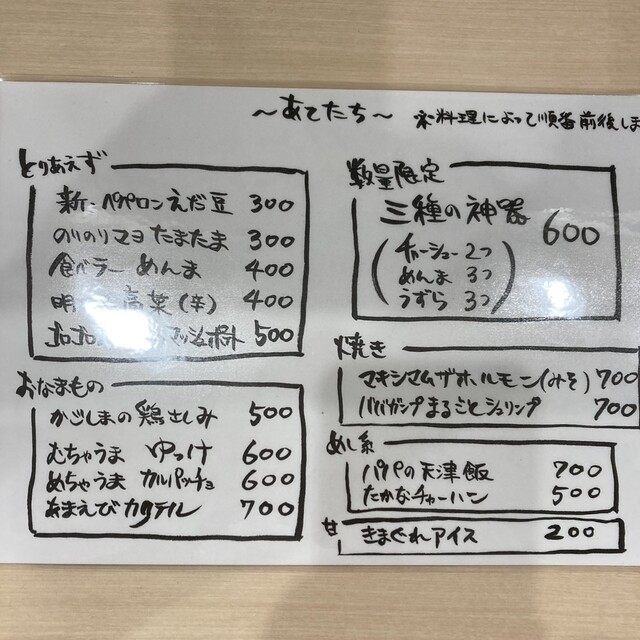 ～あてたち～
※料理によって順番前後しま
とりあえず
新・ペペロンえだ豆 300
のりのりマヨ たまたま 300
食べラー めんま 400
明 高菜(辛) 400
ゴロゴロ マッシュポテト 500
おなまもの
かごしまの鶏さしみ 500
むちゃうま ゆっけ 600
めちゃうま カルパッチョ 600
あまえびカクテル 700
数量限定
三種の神器 600
(チャーシュー 2つ
めんま 3つ
うずら 3つ)
焼き
マキシマムザホルモン(みそ) 700
ババガンプまるごとシュリンプ 700
めし系
パパの天津飯 700
たかなチャーハン 500
甘
きまぐれアイス 200